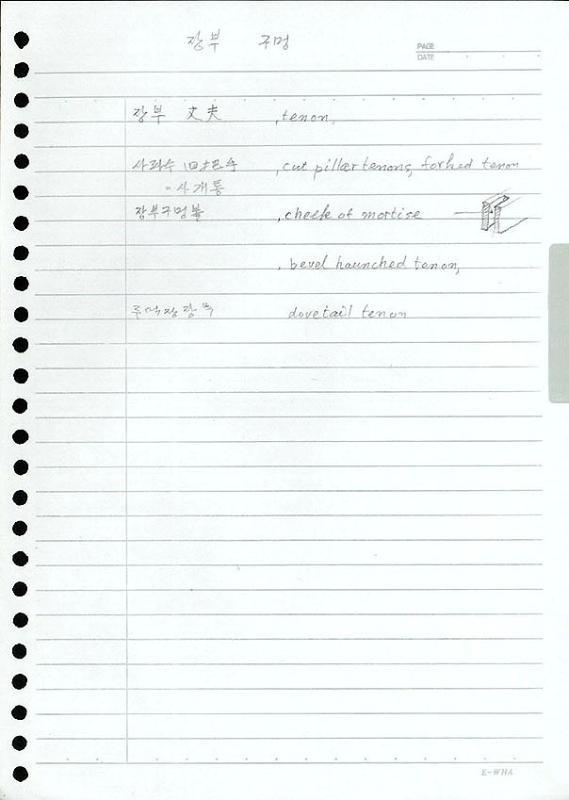 장부 구멍
PAGE
DATE
장부 丈夫 , tenon,
사파수 四 手 , cut pillar tenons, forked tenon
- 사개통
장부구멍볼 , cheek of mortise
, bevel haunched tenon,
주먹장장부 dovetail tenon
E-WHA